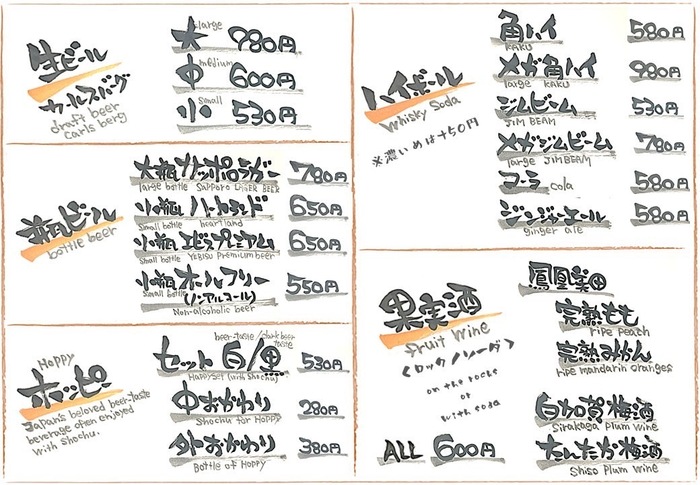 生ビール
カールスバーグ
draft beer
carls berg
大 980円
large
中 600円
medium
小 530円
small
瓶ビール
bottle beer
大瓶サッポロラガー 780円
large bottle SAPPORO LAGER BEER
小瓶 ハートランド 650円
Small bottle heartland
小瓶 エビスプレミアム 650円
Small bottle YEBISU Premium beer
小瓶 オールフリー 550円
Small bottle (ノンアルコール)
Non-alcoholic beer
Hoppy
ホッピー
Japan's beloved beer-taste
beverage often enjoyed
with Shochu.
beer-taste/dark beer taste
セット 白/黒 530円
Happy Set (with Shochu)
中おかわり 280円
Shochu for Hoppy
外おかわり 380円
Bottle of Hoppy
ハイボール
Whisky Soda
※濃いめは+50円
角ハイ 580円
KAKU
メガ角ハイ 980円
large KAKU
ジムビーム 530円
JIM BEAM
メガジムビーム 780円
large JIM BEAM
コーラ cola 580円
ジンジャーエール 580円
ginger ale
果実酒
fruit wine
<ロック/ソーダ>
on the rocks
or
with soda
ALL 600円
鳳凰美田
完熟もも
ripe peach
完熟みかん
ripe mandarin oranges
白加賀梅酒
Sirakaga Plum wine
梅酒
Shiso Plum Wine